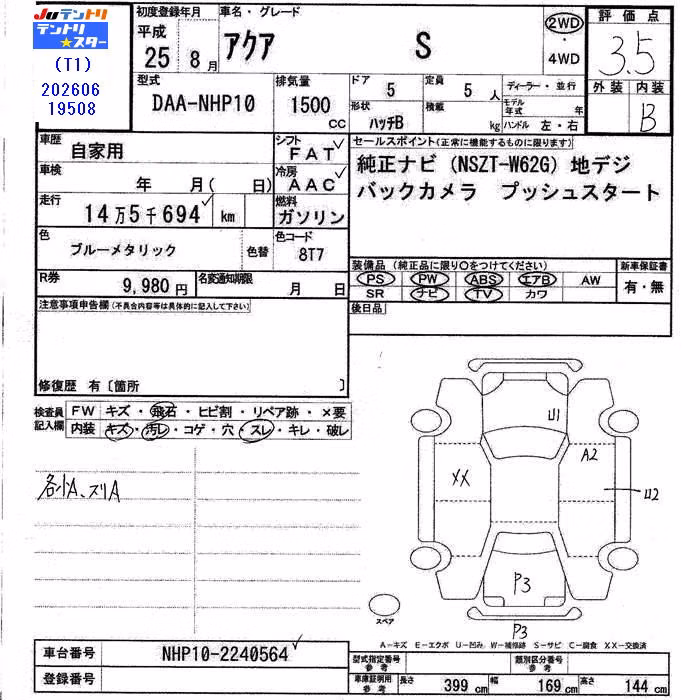 Juテントリ
テントリ★スター
(T1)
202606
19508
初度登録年月
平成
25年8月
車名・グレード
アクア S
2WD
・
4WD
評価点
3.5
外装 内装
B
型式
DAA-NHP10
排気量
1500 CC
ドア 5
定員 5 人
ディーラー・並行
形状 ハッチB
積載 kg
モデル年式 年
ハンドル 左・右
車歴
自家用
シフト
FAT
車検
年 月(日)
冷房
AAC
走行
14万5千694 km
燃料
ガソリン
色
ブルーメタリック
色替
色コード
8T7
R券
9,980円
名変通知期限
月 日
セールスポイント(正常に機能するものに限ります)
純正ナビ (NSZT-W62G) 地デジ
バックカメラ プッシュスタート
装備品 (純正品に限り○をつけてください)
PS PW ABS エアB AW
SR ナビ TV カワ
新車保証書
有・無
後日品
注意事項申告欄(不具合内容等は具体的に記入して下さい)
修復歴 有〔箇所 〕
検査員記入欄
FW キズ・飛石・ヒビ割・リペア跡・×要
内装 キズ・汚レ・コゲ・穴・スレ・キレ・破レ
各小A、スリA
U1
A2
XX
U2
P3
P3
スペア
A-キズ E-エクボ U-凹み W-補修跡 S-サビ C-腐食 XX-交換済
車台番号
NHP10-2240564
登録番号
型式指定番号 参考
類別区分番号 参考
車庫証明用 参考
長さ 399 cm
幅 169 cm
高さ 144 cm